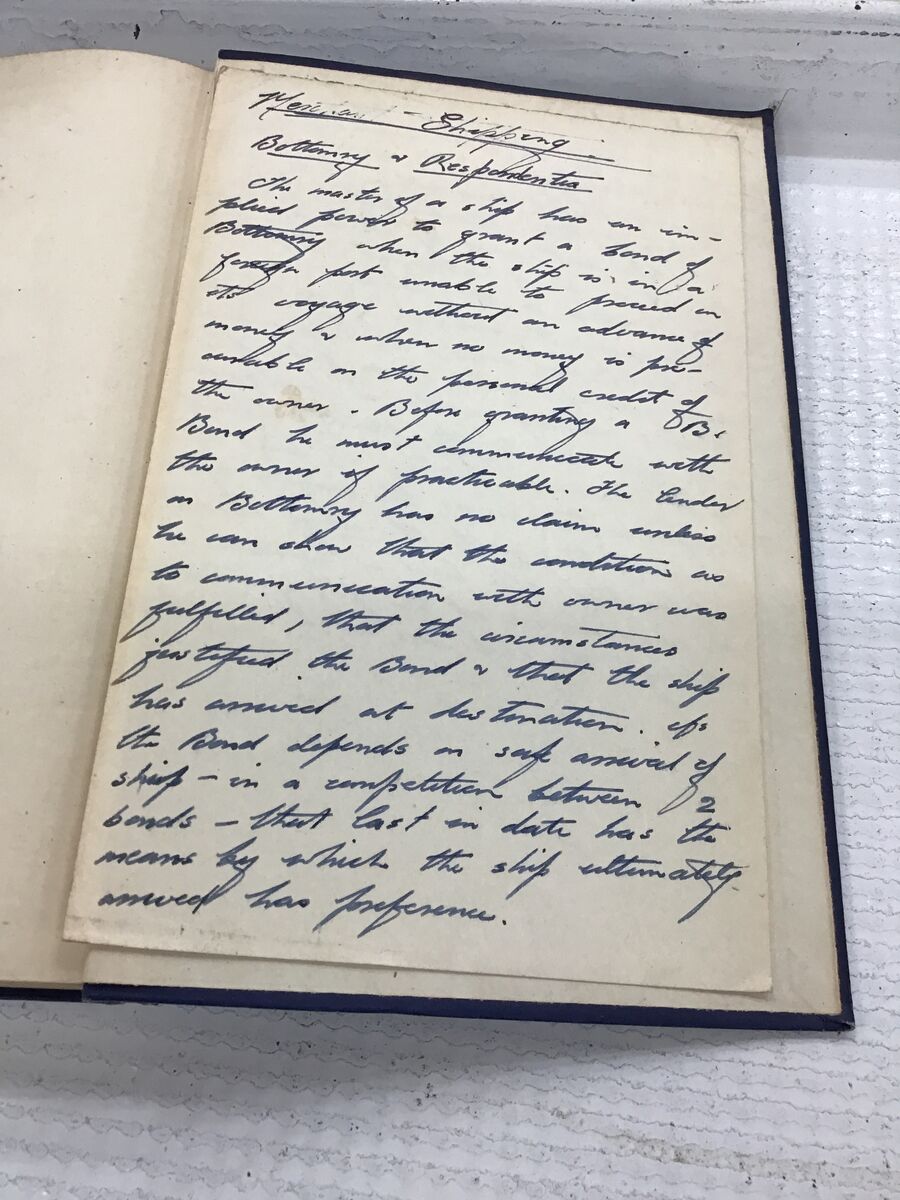 Merchant - Shipping
Bottomry & Respondentia
The master of a ship has an im-
plied power to grant a bond of
Bottomry when the ship is in a
foreign port unable to proceed on
its voyage without an advance of
money & when no money is pro-
curable on the personal credit of
the owner. Before granting a B.
Bond he must communicate with
the owner if practicable. The lender
on Bottomry has no claim unless
he can show that the condition as
to communication with owner was
fulfilled, that the circumstances
justified the Bond & that the ship
has arrived at destination. As
the Bond depends on safe arrival of
ship - in a competition between 2
bonds - that last in date has the
means by which the ship ultimately
arrived has preference.